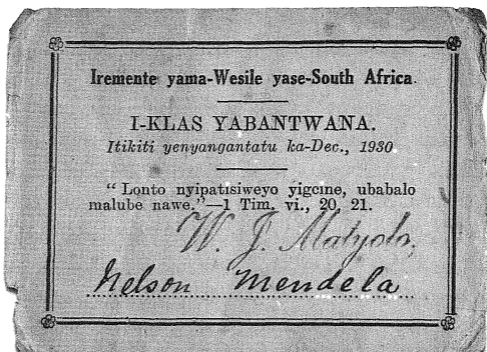 Iremente yama-Wesile yase-South Africa.
I-KLAS YABANTWANA.
Itikiti yenyangantatu ka-Dec., 1930
“ Lonto nyipatisiweyo yigcine, ubabalo
malube nawe.”—1 Tim. vi., 20, 21.
W. J. Matyolo,
Nelson Mendela